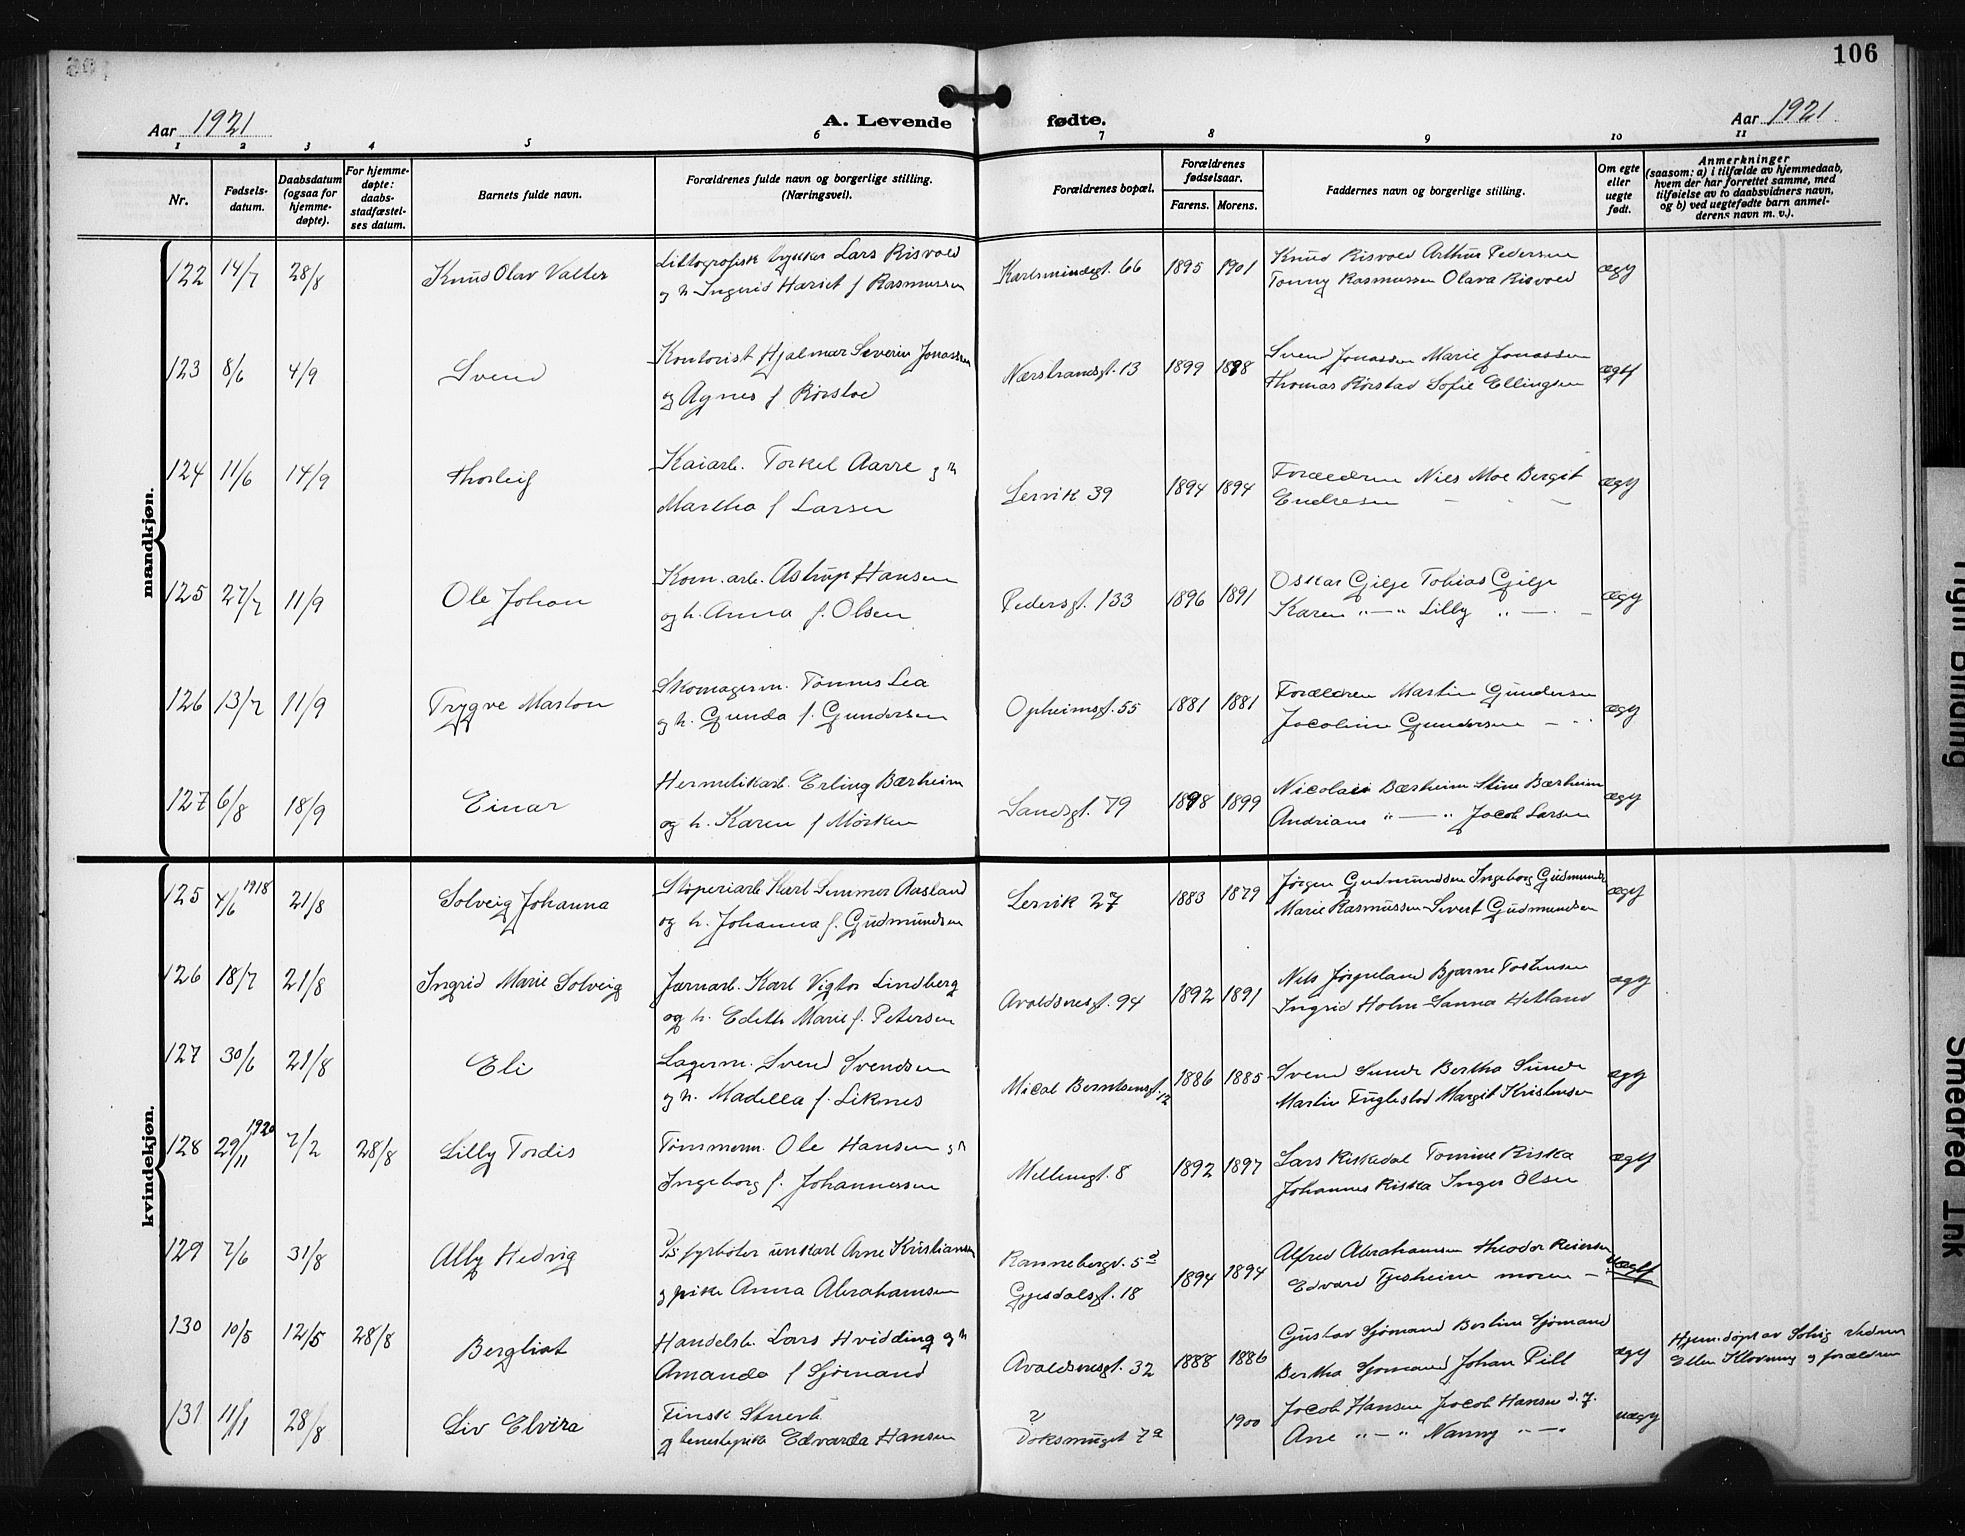 106
Aar 1921
A. Levende fødte.
Aar 1921
1 2 3 4 5 6 7 8 9 10 11
Nr.
Fødsels-
datum.
Daabsdatum
(ogsaa for
hjemme-
døpte).
For hjemme-
døpte:
daabs-
stadfæstel-
ses datum.
Barnets fulde navn.
Forældrenes fulde navn og borgerlige stilling.
(Næringsvei).
Forældrenes bopæl.
Forældrenes
fødselsaar.
Farens. Morens.
Faddernes navn og borgerlige stilling.
Om egte
eller
uegte
født.
Anmerkninger
(saasom: a) i tilfælde av hjemmedaab,
hvem der har forrettet samme, med
tilføielse av to daabsvidners navn,
og b) ved uegtefødte barn anmel-
derens navn m. v.).
mandkjøn.
122 14/7 28/8 Knud Olav Valter
Littografisk trykker Lars Risvold
og h. Ingerid Harict f. Rasmussen
Karlsmindegt. 66 1895 1901
Knud Risvold Arthur Pedersen
Tonny Rasmussen Olava Risvold
ægt
123 8/6 4/9 Svend
Kontorist Hjalmar Severin Jonassen
og Agnes f. Rørstad
Nærstrandsgt. 13 1899 1898
Svend Jonassen Marie Jonassen
Thomas Rørstad Sofie Ellingsen
ægtf
124 11/6 14/9 Thorleif
Kaiarb. Torkel Aarre og h
Martha f Larsen
Lervik 39 1894 1894
Forældrene Niels Moe Bergit
Endresen — — —
ægt
125 27/7 11/9 Ole Johan
Kom. arb. Astrup Hansen
og h. Anna f. Olsen
Pedersgt. 133 1896 1891
Oskar Gilje Tobias Gilje
Karen „—„ Lilly „—
ægt
126 13/7 11/9 Trygve Marton
Skomagerm. Tønnes Lea
og h. Gunda f. Gundersen
Opheimsgt. 55 1881 1881
Forældrene Martin Gundersen
Jacobine Gundersen —
ægt
127 6/8 18/9 Einar
Hermetikarb. Erling Bærheim
og h. Karen f Mørken
Sandsgt. 79 1898 1899
Nicolai Bærheim Stine Bærheim
Andriane „—„ Jacob Larsen
ægt
kvindekjøn.
125 4/6 1918 21/8 Solveig Johanna
Støperiarb Karl Simmer Aasland
og h. Johanna f. Gudmundsen
Lervik 27 1883 1879
Jørgen Gudmundsen Ingeborg Gudmunds
Marie Rasmussen Sivert Gudmundsen
ægt
126 18/7 21/8 Ingrid Marie Solveig
Jærnarb. Karl Vigtor Lindberg
og h. Edith Marie f. Petersen
Avaldsnesgt. 94 1892 1891
Nels Jørpeland Bjarne Torstensen
Ingrid Holm Sanna Hetland
ægt
127 30/6 21/8 Eli
Lagerm. Svend Svendsen
og h. Madella f. Liknes
Micol Berntsensgt. 12 1886 1885
Svend Sunde Bertha Sunde
Martin Fuglestad Margit Kristensen
ægt
128 29/11 1920 7/2 28/8 Lilly Tordis
Tømmerm. Ole Hansen og h
Ingeborg f. Johannessen
Mellemgt. 8 1892 1897
Lars Riskedal Tomine Riska
Johannes Riska Inger Olsen
ægtf
129 7/6 31/8 Ally Hedvig
fyrbøter unkarl Arne Kristiansen
og pike Anna Abrahamsen
Rannebergv. 5
Gjesdalsgt. 18
1894 1894
Alfred Abrahamsen Theodor Reiersen
Edvard Tjesheim moren —
uægtf
130 10/5 12/5 28/8 Bergliot
Handelsb. Lars Hvidding og h
Amanda f Sjømand
Avaldsnesgt. 32 1888 1886
Gustav Sjømand Bertine Sjømand
Bertha Sjømand Johan Pill
ægt
Hjem. døpt av
Ellen Kloving og forældrene
131 11/1 28/8 Liv Elvira
Finsk Stuert
og Edvarda Hansen
?
Doksmuget 7a
1900
Jacob Hansen Jacob Hansen d. y.
Arne „—„ Nanny „—„
uægt
Tight Binding
Smeared Ink